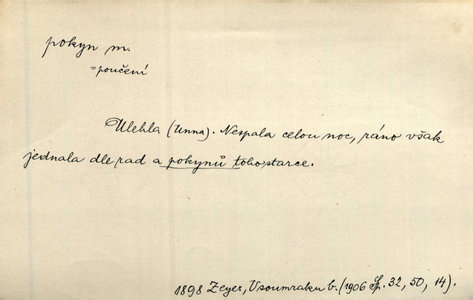 pokyn m.
=poučení
Ulehla (Unna). Nespala celou noc, ráno však
jednala dle rad a pokynů toho starce.
1898 Zeyer, V soumraku b. (1906 Sp. 32, 50, 14).